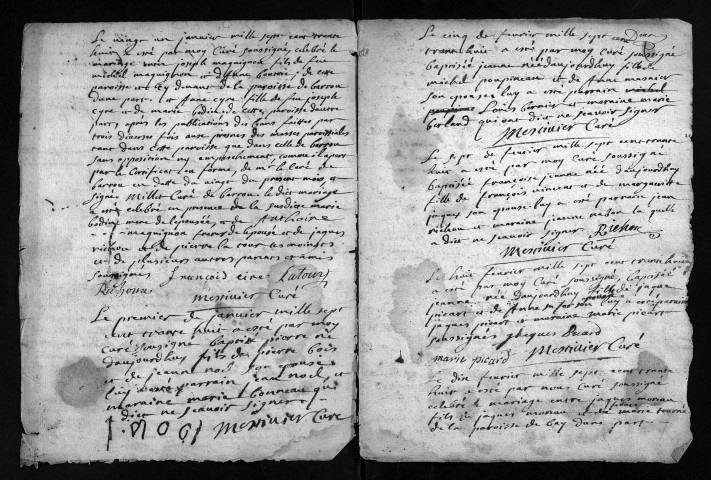 Le vingt un janvier mille sept cent trante
huit a esté par moy Curé soussigné celebré le
mariage entre joseph maguignon fils de feu
michel maguignon et d'Anne de cette
paroisse et luy dumant de la paroisse de barrou
dune part. Et Anne cyre fille de feu joseph
cyre et de marie bodin de cette paroisse dautre
part, apres les publications des bans faittes par
trois diverses fois aux prosnes des messes paroissialles
tant dans cette paroisse que dans celle de barrou
sans opposition ny empeschement, comme il apart
par le Certificat en forme, de mr le Curé de
barrou en datte du vingt du present mois, et
signé Millet Curé de barrou. le dit mariage
a esté celebré en presence de la susditte marie
bodin, mere de lepousée, et de Anthoine
maguignon frere de lepousé et de jaques
richou et de pierre la tour tesmoings
et de plusieurs autres parans et amis
soussignés francois cire Latour
Richoux
Mesnivier Curé
Le premier de janvier mille sept
cent trante huit a esté par moy
Curé soussigné baptisé pierre né
daujourdhuy fils de pierre bois
et de jeanne noel son epouse
luy a esté parrain jean noel et
maraine marie bonneau qui
ont dit ne scavoir signer
Mesnivier Curé
Le cinq de fevrier mille sept cent
trante huit a esté par moy Curé soussigné
baptisée jeanne née daujourdhuy fille de
michel poupineau et de Anne
son epouse luy a esté parrain
Louis bernier et maraine marie
berland qui ont dit ne scavoir signer
Mesnivier Curé
Le sept de fevrier mille sept cent trante
huit a esté par moy Curé soussigné
baptisée françoise jeanne née daujourdhuy
fille de françois vincent et de marguerite
jaquet son epouse luy a esté parrain jean
richou et maraine jeanne la quelle
a dit ne scavoir signer Richou
Mesnivier Curé
Le huit fevrier mille sept cent trante huit
a esté par moy Curé soussigné, baptisée
jeanne née daujourdhuy fille de jaques
picart et de Anne son epouse luy a esté parrain
jaques picart et maraine marie picart
soussignés jacques Picard
marie picard Mesnivier Curé
Le dix fevrier mille sept cent trante
huit a esté par nous Curé soussigné
celebré le mariage entre jaques moreau
fils de jaques moreau et de marie tourné
de la paroisse de bay dune part